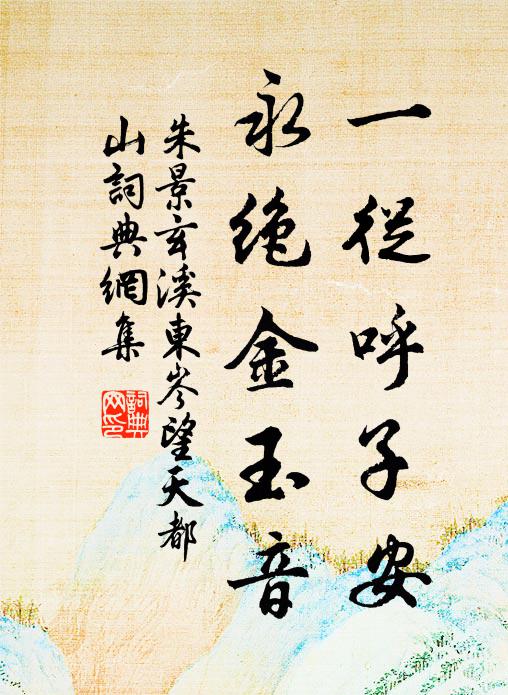 一從呼子安
永绝金玉音
朱景玄溪東岑望天都
山詞典網集
詞典
网印